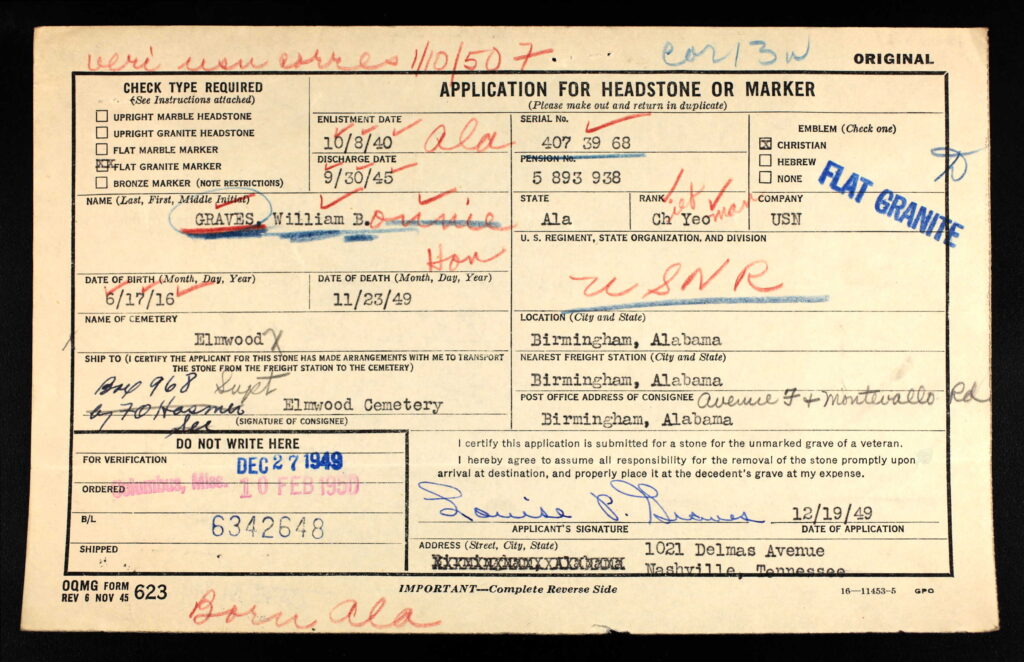 veri usn corres 1/10/50 7.
cor 13w
ORIGINAL
CHECK TYPE REQUIRED
(See Instructions attached)
UPRIGHT MARBLE HEADSTONE
UPRIGHT GRANITE HEADSTONE
FLAT MARBLE MARKER
XX FLAT GRANITE MARKER
BRONZE MARKER (NOTE RESTRICTIONS)
APPLICATION FOR HEADSTONE OR MARKER
(Please make out and return in duplicate)
ENLISTMENT DATE
10/8/40 Ala
DISCHARGE DATE
9/30/45
SERIAL No.
407 39 68
PENSION No.
5 893 938
EMBLEM (Check one)
X CHRISTIAN
HEBREW
NONE
FLAT GRANITE
NAME (Last, First, Middle Initial)
GRAVES, William B. onnie
Hon
STATE
Ala
RANK
Ch Yeo man
iet
COMPANY
USN
U. S. REGIMENT, STATE ORGANIZATION, AND DIVISION
USNR
DATE OF BIRTH (Month, Day, Year)
6/17/16
DATE OF DEATH (Month, Day, Year)
11/23/49
NAME OF CEMETERY
Elmwood
LOCATION (City and State)
Birmingham, Alabama
SHIP TO (I CERTIFY THE APPLICANT FOR THIS STONE HAS MADE ARRANGEMENTS WITH ME TO TRANSPORT
THE STONE FROM THE FREIGHT STATION TO THE CEMETERY)
Box 968 Supt
by F O Hosmer Elmwood Cemetery
Sec
(SIGNATURE OF CONSIGNEE)
NEAREST FREIGHT STATION (City and State)
Birmingham, Alabama
POST OFFICE ADDRESS OF CONSIGNEE Avenue F & Montevallo Rd
Birmingham, Alabama
DO NOT WRITE HERE
FOR VERIFICATION
DEC 27 1949
ORDERED
Columbus, Miss. 10 FEB 1950
B/L
6342648
SHIPPED
I certify this application is submitted for a stone for the unmarked grave of a veteran.
I hereby agree to assume all responsibility for the removal of the stone promptly upon
arrival at destination, and properly place it at the decedent's grave at my expense.
Louise P. Graves 12/19/49
APPLICANT'S SIGNATURE DATE OF APPLICATION
ADDRESS (Street, City, State)
1021 Delmas Avenue
Nashville, Tennessee
OQMG FORM
REV 6 NOV 45 623
IMPORTANT—Complete Reverse Side
16—11453-5 GPO
Born Ala